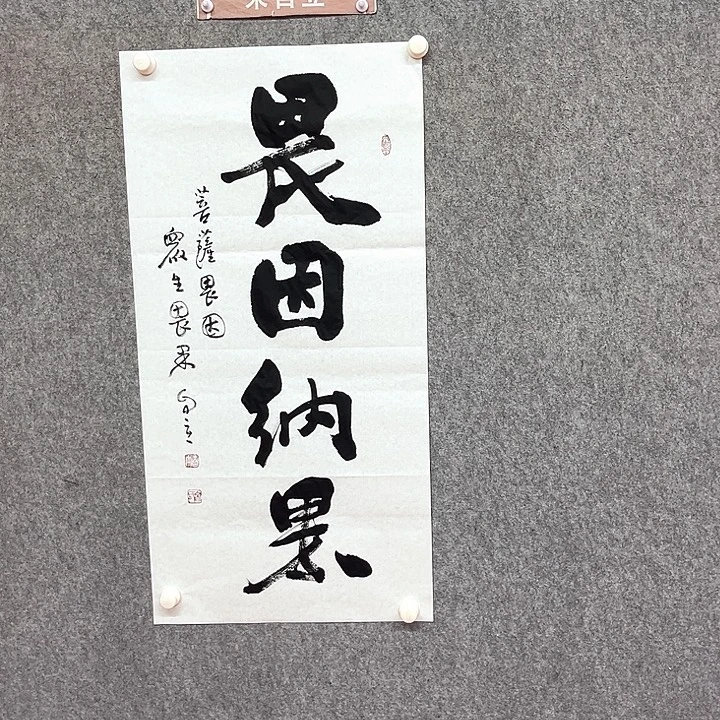 畏因纳果
菩薩畏因
衆生畏果 自立